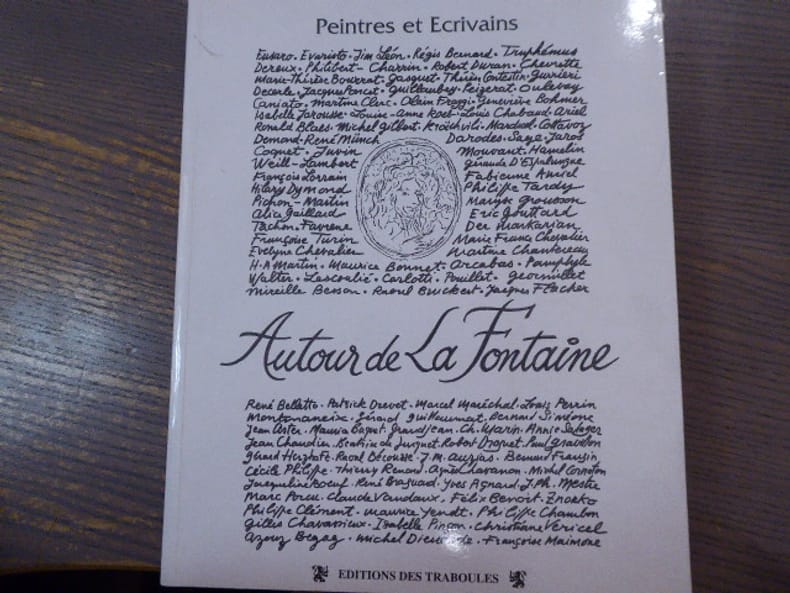 Peintres et Ecrivains
Fusaro. Evaristo. Jim Léon. Régis Bernard. Truphémus
Dereux. Philibert-Charrin. Robert Duran. Chevrette
Marie-Thérèse Bourrat. Gasquet. Thérèse Contestin. Guerrieri
Decerle. Jacques Poncet. Guillaubey. Peizerat. Oulevay
Caniato. Martine Clerc. Alain Froggi. Geneviève Bohmer
Isabelle Jarousse. Louise-Anne Roet. Louis Chabaud. Ariel
Ronald Blaes. Michel Gilbert. Marduel. Cottavoz
Demond. René Münch Darodes. Saye. Jaros
Coquet. Juvin Mouvant. Hamelin
Weill-Lambert Géraude D'Espalungue
François Lorrain Fabienne Amiel
Hilary Dymond Philippe Tardy
Pichon-Martin Maryse Grousson
Alice Gaillard Eric Gouttard
Tachon. Favrene Der Markarian
Françoise Turin Marie France Chevalier
Evelyne Chevalier Martine Chantereau
H.A Martin. Maurice Bonnet. Arcabas. Pamphyle
Walter. Lescoulié. Carlotti. Pouillet. Geormillet
Mireille Besson. Raoul Bruckert. Jacques Flacher
Autour de La Fontaine
René Belletto. Patrick Drevet. Marcel Maréchal. Louis Perrin
Montmaneix. Gérard Guilleaumat. Bernard Siméone
Jean Aster. Mauria Baquet. Grandjean. Ch. Marin. Annie Salager
Jean Chaudier. Béatrice de Jurquet. Robert Droguet. Paul Gravillon
Gérard Herzhaft. Raoul Bécousse. J.M. Auzias. Bernard Frangin
Cécile Philippe. Thierry Renard. Agnès Chavanon. Michel Cornaton
Jacqueline Boeuf. René Braguard. Yves Agnard. J. Ph. Mestre
Marc Porcu. Claude Vandaux. Félix Benoit. Znorko
Philippe Clément. Maurice Yendt. Philippe Chambon
Gilles Chavassieux. Isabelle Pinçon. Christiane Vericel
Azouz Begag. Michel Françoise Maimone
EDITIONS DES TRABOULES